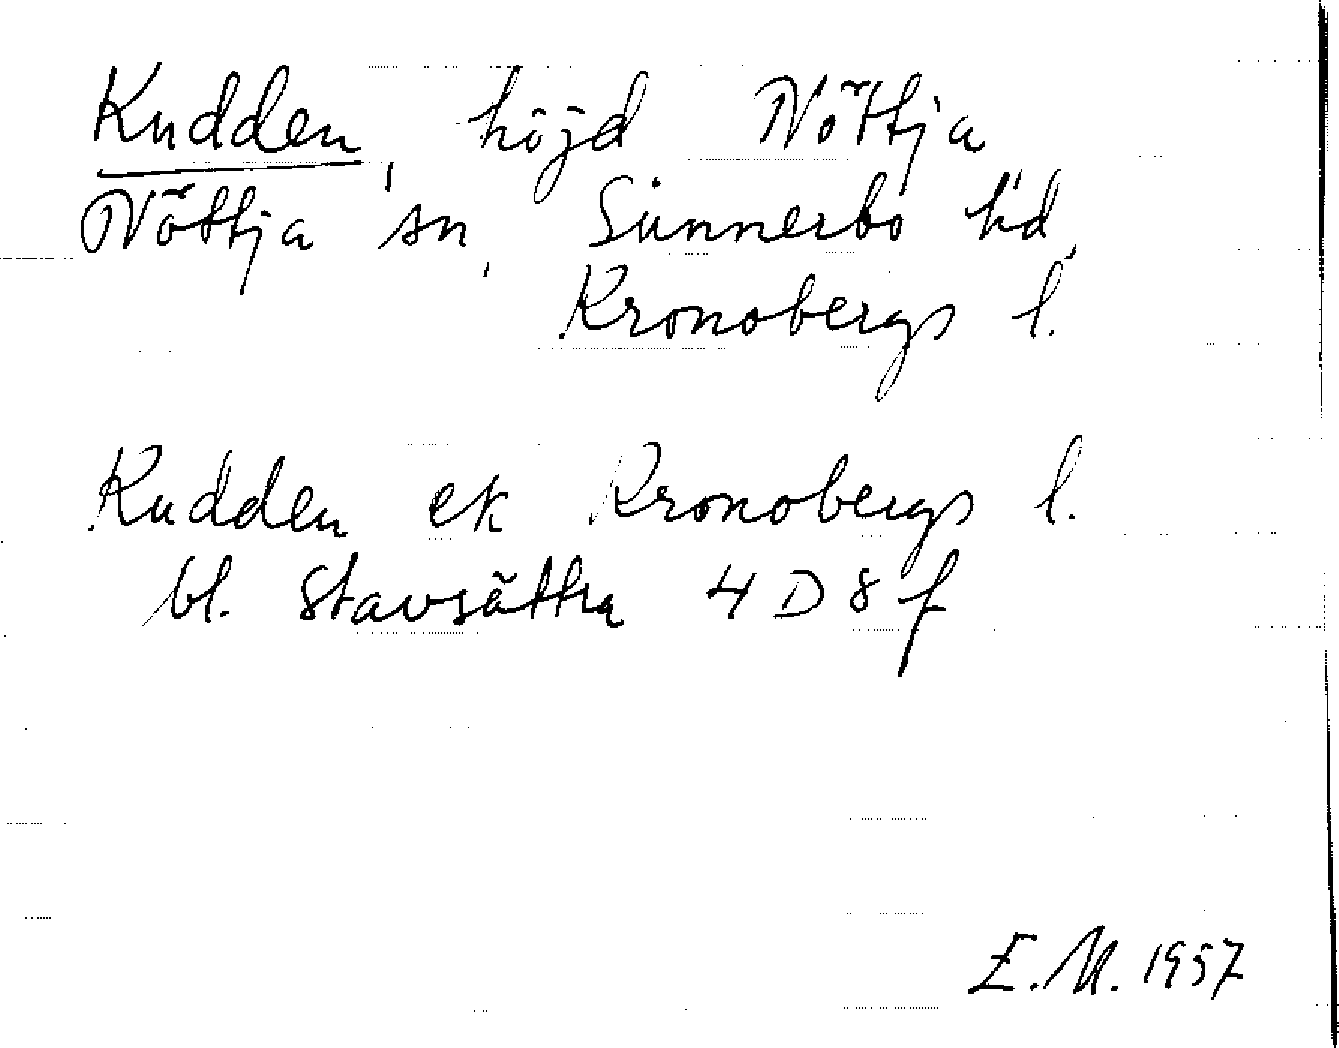 Kudden, höjd Nöttja
Nöttja sn, Sunnerbo hd,
Kronobergs l.
Kudden ek Kronobergs l.
bl. Stavsätra 4D8f
E.M. 1957